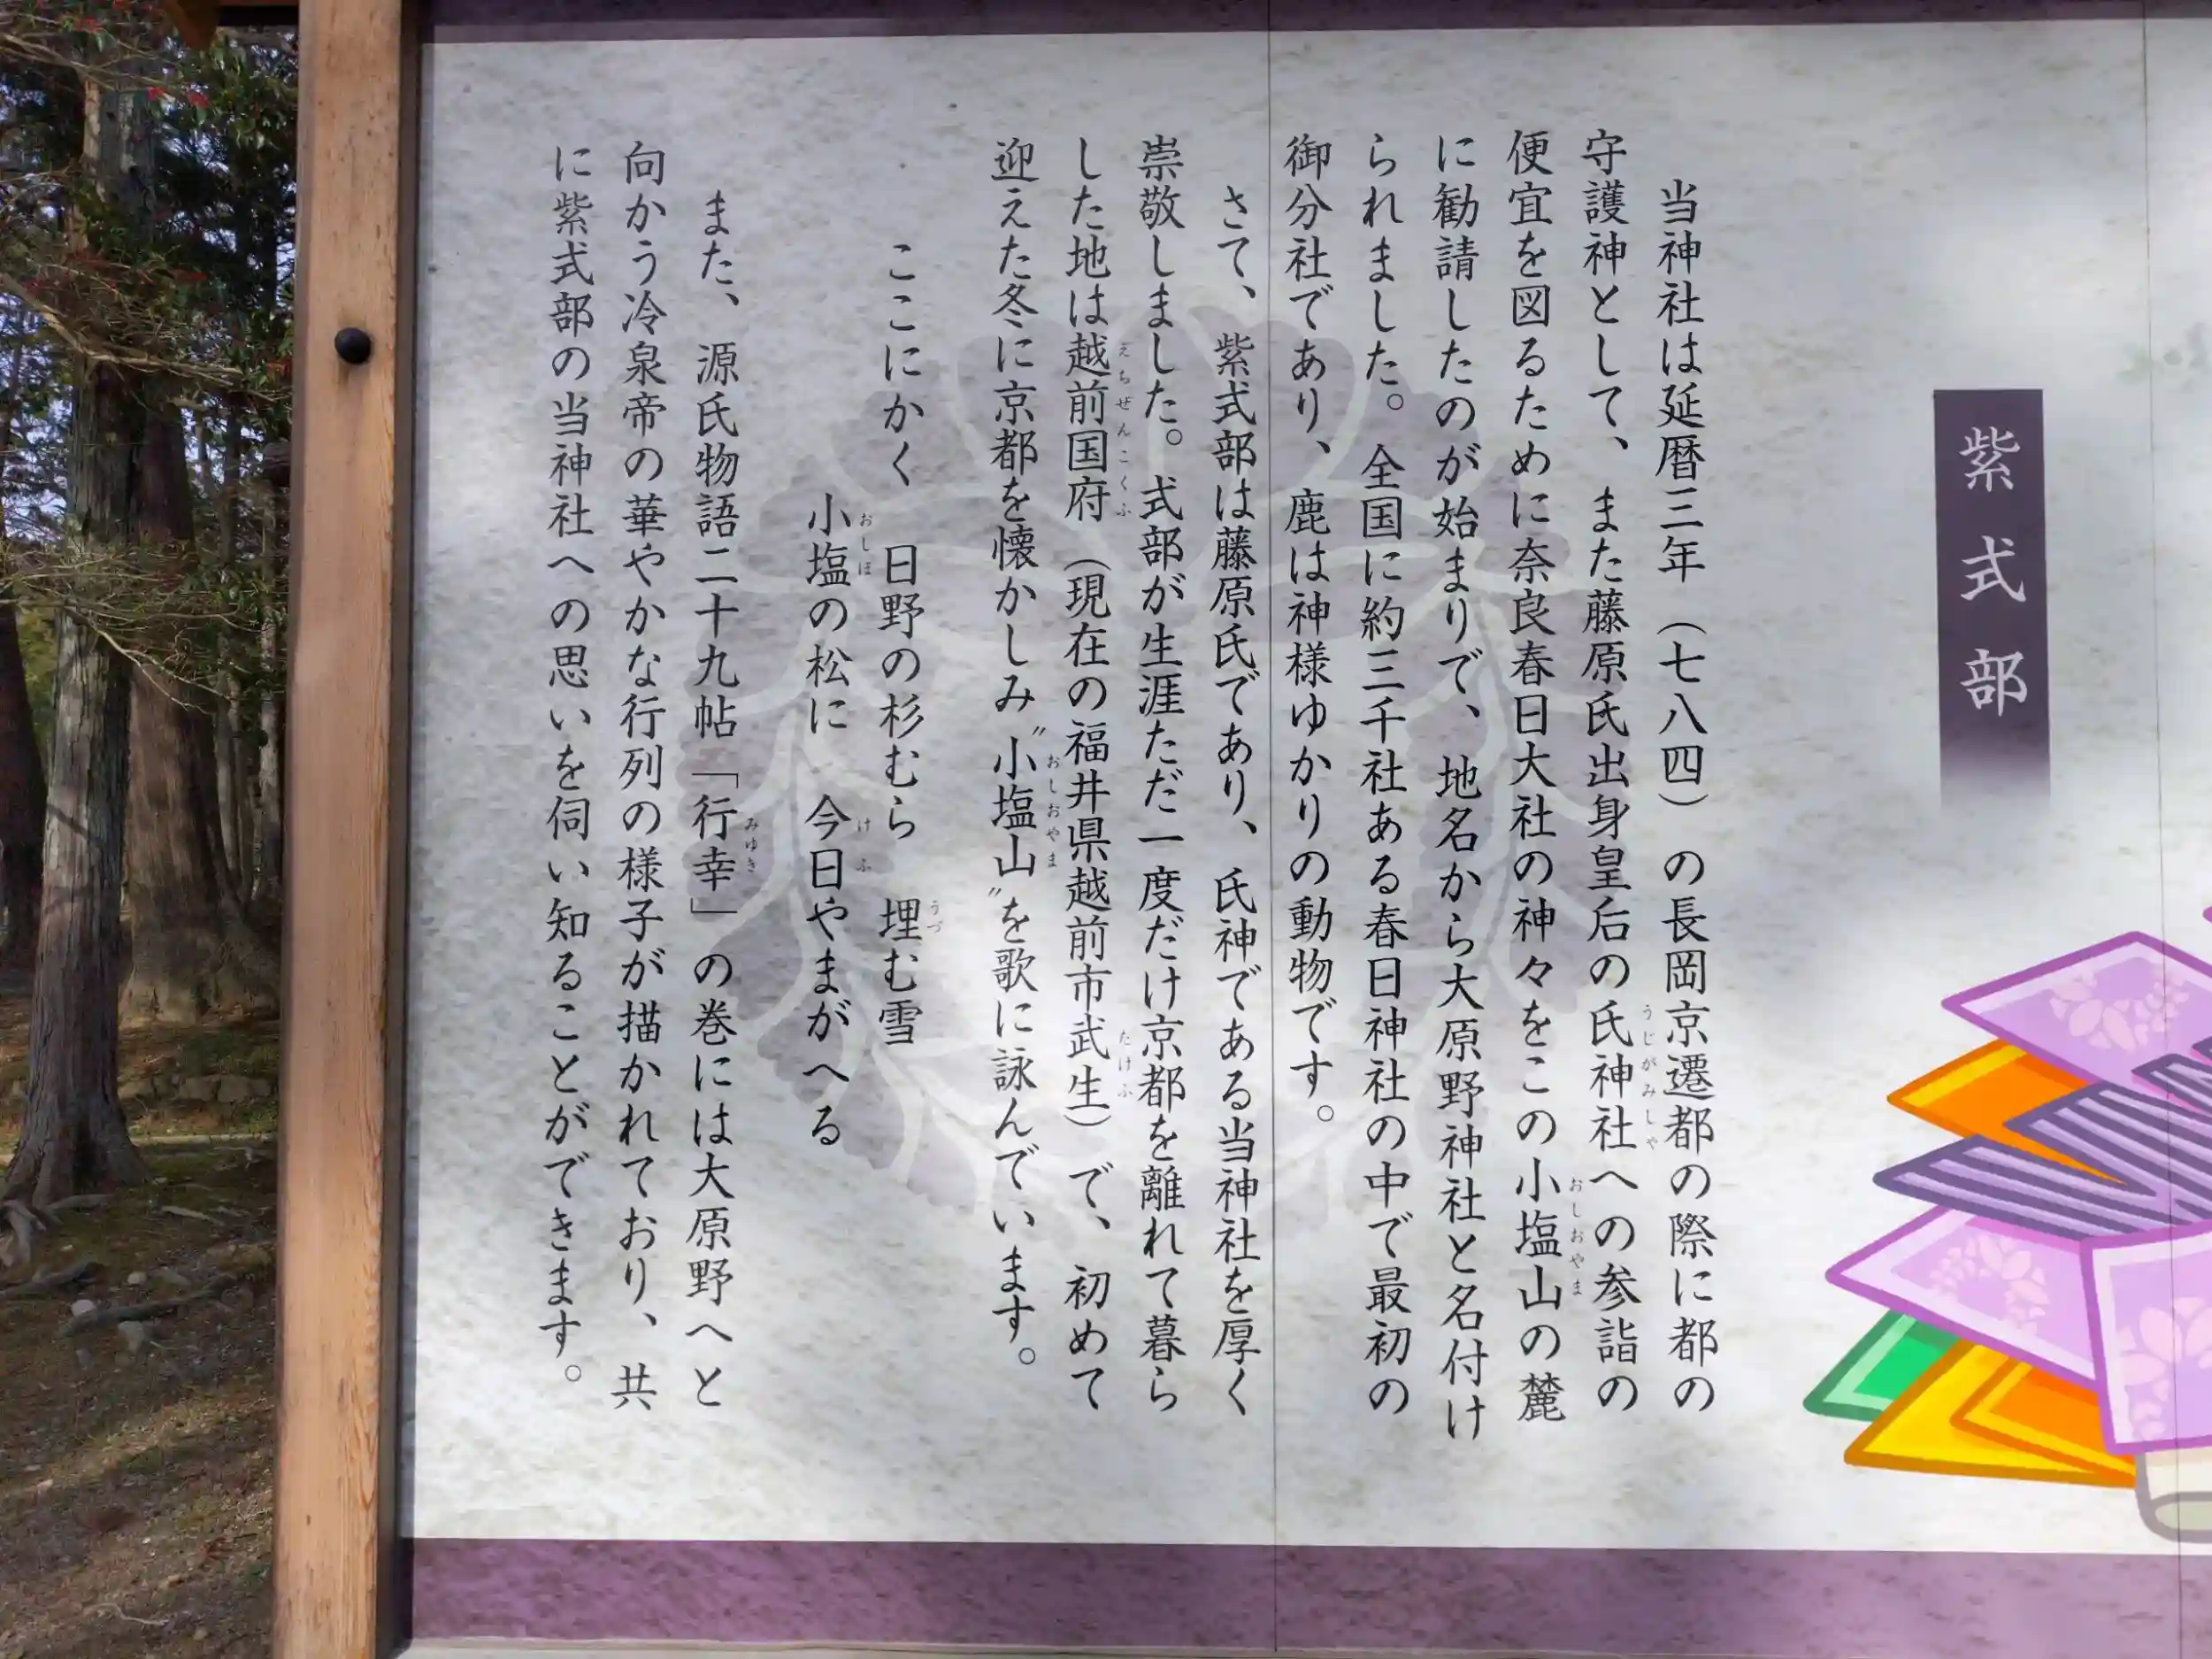 紫式部
当神社は延暦三年（七八四）の長岡京遷都の際に都の
守護神として、また藤原氏出身皇后の氏神社への参詣の
便宜を図るために奈良春日大社の神々をこの小塩山の麓
に勧請したのが始まりで、地名から大原野神社と名付け
られました。全国に約三千社ある春日神社の中で最初の
御分社であり、鹿は神様ゆかりの動物です。
さて、紫式部は藤原氏であり、氏神である当神社を厚く
崇敬しました。式部が生涯ただ一度だけ京都を離れて暮ら
した地は越前国府（現在の福井県越前市武生）で、初めて
迎えた冬に京都を懐かしみ〝小塩山〟を歌に詠んでいます。
ここにかく　日野の杉むら　埋む雪
小塩の松に　今日やまがへる
また、源氏物語二十九帖「行幸」の巻には大原野へと
向かう冷泉帝の華やかな行列の様子が描かれており、共
に紫式部の当神社への思いを伺い知ることができます。